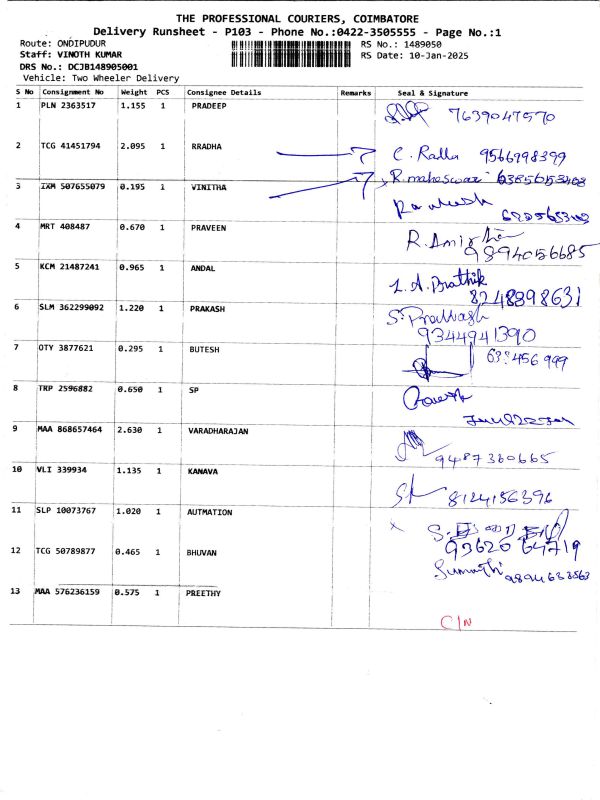 THE PROFESSIONAL COURIERS, COIMBATORE
Delivery Runsheet - P103 - Phone No.:0422-3505555 - Page No.:1
Route: ONDIPUDUR RS No.: 1489050
Staff: VINOTH KUMAR RS Date: 10-Jan-2025
DRS No.: DCJB148905001
Vehicle: Two Wheeler Delivery
S No Consignment No Weight PCS Consignee Details Remarks Seal & Signature
1 PLN 2363517 1.155 1 PRADEEP 7639047570
2 TCG 41451794 2.095 1 RRADHA C. Radha 9566998399
R. maheswari
3 IXM 507655079 0.195 1 VINITHA
4 MRT 408487 0.670 1 PRAVEEN R. Amirtha
9894056685
5 KCM 21487241 0.965 1 ANDAL L. A. Prathik
8248898631
6 SLM 362299092 1.220 1 PRAKASH S. Prakash
9344941390
7 OTY 3877621 0.295 1 BUTESH
8 TRP 2596882 0.650 1 SP
9 MAA 868657464 2.630 1 VARADHARAJAN 9487360665
10 VLI 339934 1.135 1 KANAVA 8124156396
11 SLP 10073767 1.020 1 AUTMATION x S.
93620 64719
12 TCG 50789877 0.465 1 BHUVAN Sumathi 9894633563
13 MAA 576236159 0.575 1 PREETHY
C/N